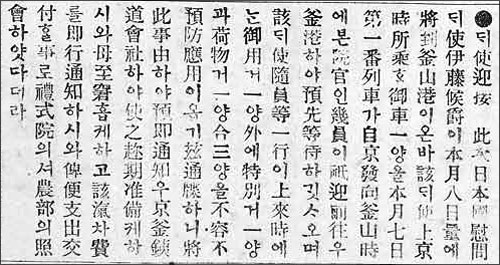 ●듸使迎接　此日本國慰問
듸使伊藤候爵이本月八日量에
將到釜山港이온바該듸使上京
時所乘홀御車一양을本月七日
第一番列車가自京發向釜山時
에본院官인幾員이祇迎前往우
釜港하야預先等待하깃스오며
該듸使隨員等一行이上來時에
는御用거一양外에特別거一양
과荷物거一양合三양을不容不
預防應用이옵기玆通牒하니將
此事由하야預即通知우京釜鉄
道會社하야使之趂期准備케하
시와毋至窘홈케하고該滊차費
를即行通知하시와俾便支出交
付홀事로禮式院의셔農部의照
會하얏다데라